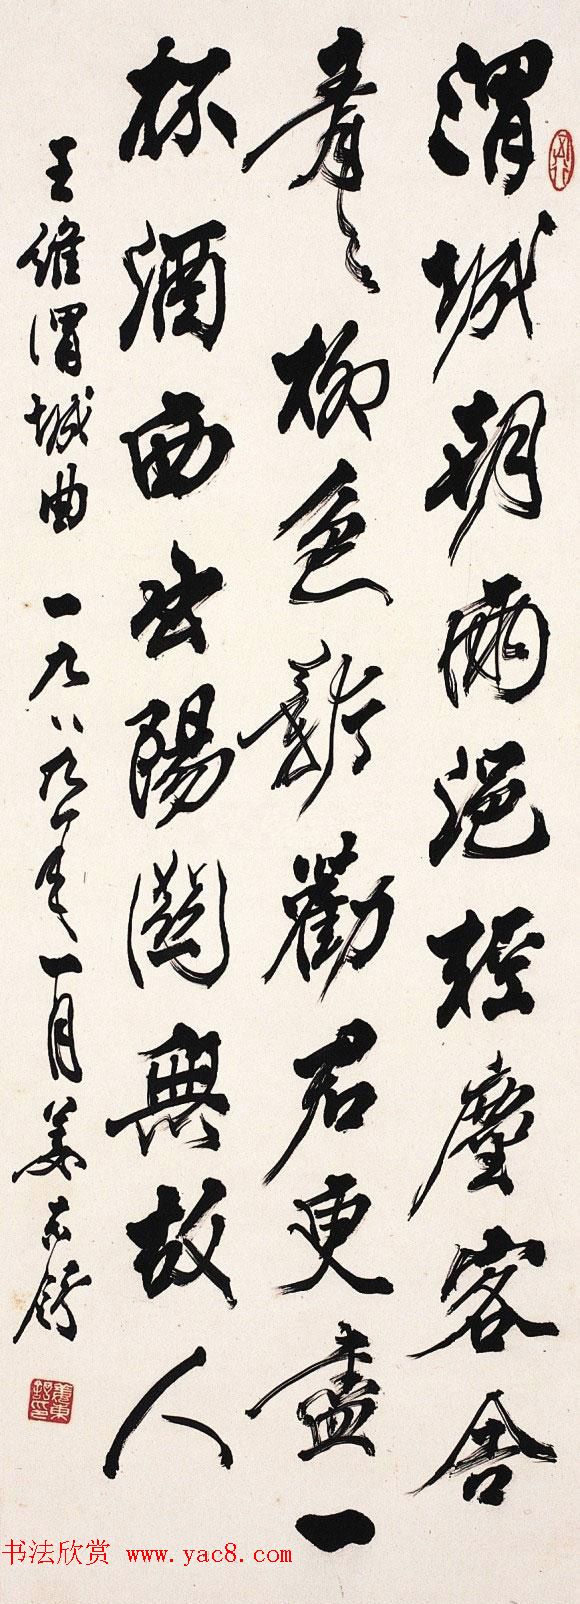 渭城朝雨浥輕塵客舍
青々柳色新勸君更盡一
杯酒西出陽關無故人
王維渭城曲 一九八九年一月姜东舒
姜東舒印
书法欣赏 www.yac8.com